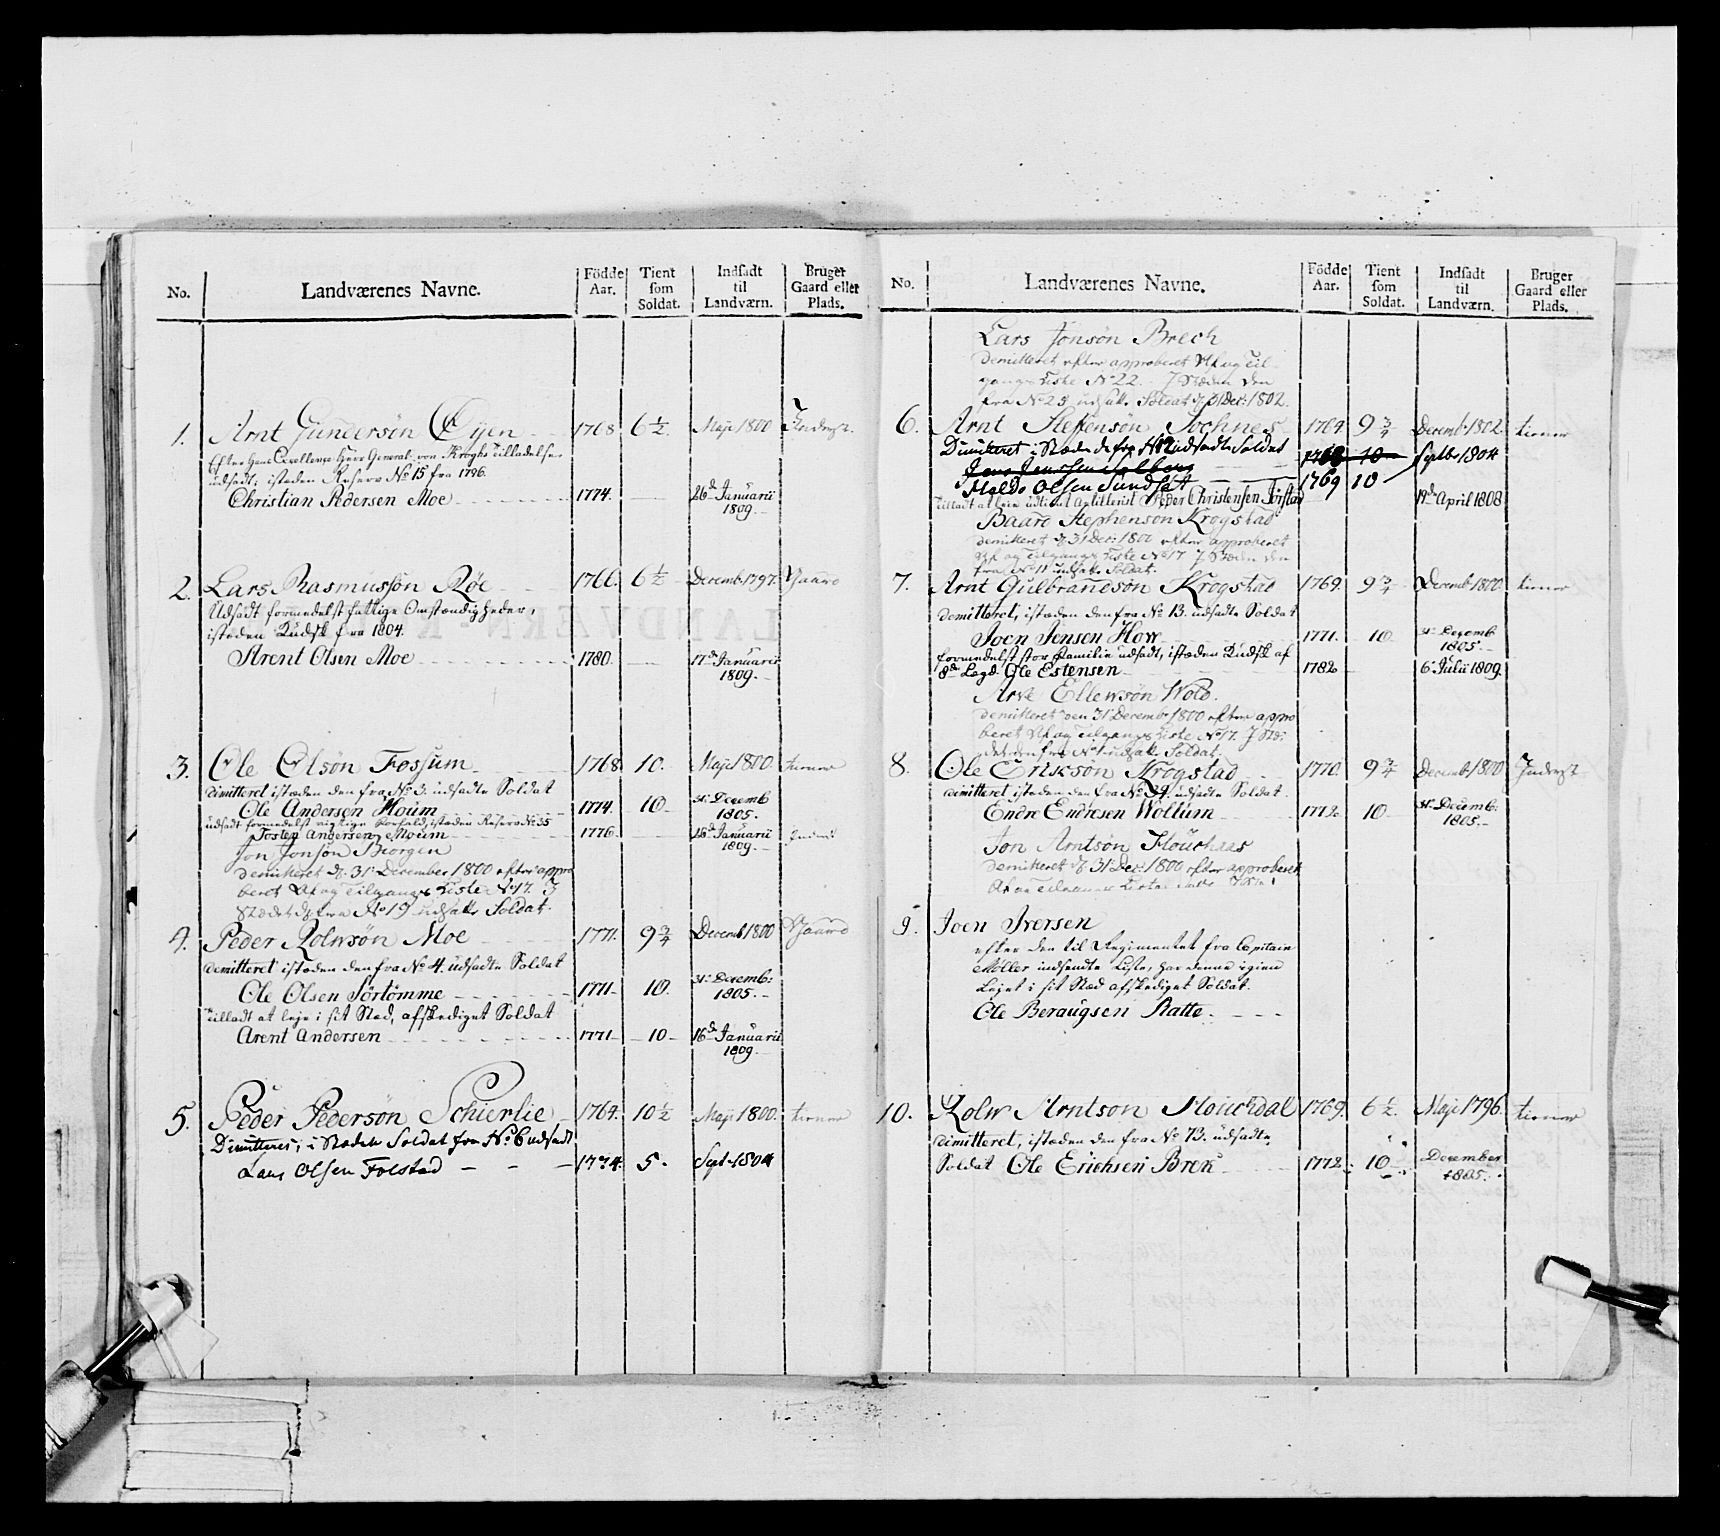 No.
Landværenes Navne.
Födde Aar.
Tient som Soldat.
Indsadt til Landværn.
Bruger Gaard eller Plads.
1. Arnt Gundersön Öyen 1768 6½ Maji 1800 Inderst.
Efter Hans Excellence Herr General von Kroghs Tilladelse
udsadt; isteden Reserv No 15 fra 1796.
Christian Pedersen Moe 1774. 26de Januarii 1809.
2. Lars Rasmussön Röe 1766. 6½ Decemb. 1797. Gaard
Udsadt formedelst fattige Omstændigheder,
isteden Kudsk fra 1804.
Arent Olsen Moe 1780. 17de Januarii 1809.
3. Ole Olsön Fossum 1768 10. Maji 1800.
dimitteret isteden den fra No 3. udsadte Soldat
Ole Andersen Houm 1774. 10 31te Decemb 1805.
udsadt formedelst vigtige Forfald, isteden Reserv No 35
Tosten Andersen Moum 1776. 26de Januarii 1809.
Jon Jonsön Biorgen
demitteret d. 31 December 1800 efter appro
beret Af og Tilgangs Liste No 17. I
Stædet d. fra No 19 udsatte Soldat.
4. Peder Rolwsön Moe 1771. 9¾ Decemb 1800 Gaard
demitteret isteden den fra No 4. udsadte Soldat
Ole Olsen Sörtömme 1771. 10. 31te Decemb: 1805.
Tilladt at leje i sit Sted, afskediget Soldat
Arent Andersen 1771 10 16de Januarii 1809.
5. Peder Pedersön Schierlie 1764. 10½ Maji 1800.
Dimitteres; i Stædet Soldat fra No 6 udsadt
Lars Olsen Folstad 1774. 5. Sept. 1804
No.
Landværenes Navne.
Födde Aar.
Tient som Soldat.
Indsadt til Landværn.
Bruger Gaard eller Plads.
Lars Jonsön Brech
demitteret efter approberet Af og Til
gangs Liste No 22. I Stæden den
fra No 25 udsatte Soldat d. 31 Dec: 1802.
6. Arnt Stephensön Sochnes 1764. 9¾ Decemb 1802.
Dimitteret i Stædet de fra No udsadte Soldat
Jens Jenssen Solberg 1768 10 Septbr 1804
Halds Olsen Sundset 1769 10
Tilladt at leie udtient Artillerist Peder Christensen Forstad 19de April 1808
Baard Stephensön Krogstad
demitteret d. 31 Dec: 1800 efter approberet
Af og Tilgangs Liste No 17 I Stæden den
fra No 11 udsatte Soldat.
7. Arnt Gulbrandsön Krogstad 1769. 9¾ Decemb 1800.
demitteret, isteden den fra No 13. udsadte Soldat
Joen Jensen How 1771. 10 31te Decemb 1805.
formedelst stor Familie udsadt, isteden Kudsk af
8de Legd Ole Estensen 1782 6te Julii 1809.
Arve Ellewsön Wold.
demitteret den 31 Decembr 1800 efter appro
beret Af og Tilgangs Liste No 17. I Stæ:
det den fra No 1 udsatte Soldat.
8. Ole Eriksön Krogstad 1770. 9¾ Decemb 1800 Inderst
dimitteret isteden den fra No 34. udsadte Soldat.
Endre Endresen Wollum 1772. 10 31te Decemb: 1805.
Jon Arntsön
demitteret d. 31 Dec: 1800 efter approberet
9. Joen Iversen
efter den til Regimentet fra Capitain
Möller indsendte Liste, har denne igien
Lejet i sit Sted afskediget Soldat.
Ole Beraugsen Ratte.
10. Rolw Arntsön 1769. 6½ Maji 1796.
dimitteret, isteden den fra No 73. udsadte
Soldat Ole Erichsen Brek 1772. 10 December 1805.